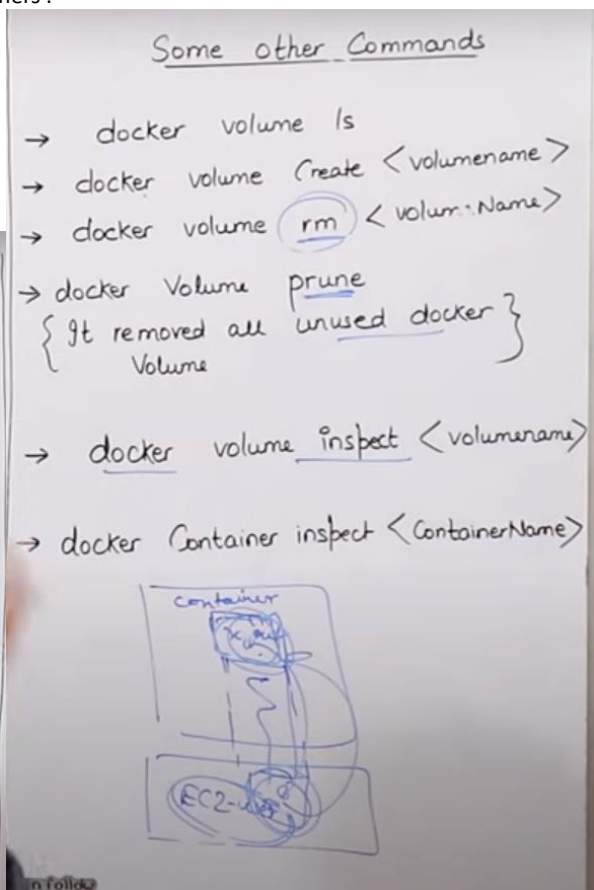 Some other Commands
→ docker volume ls
→ docker volume Create <volumename>
→ docker volume rm <volum:Name>
→ docker Volume prune
{ It removed all unused docker }
Volume
→ docker volume inspect <volumename>
→ docker Container inspect <ContainerName>
container